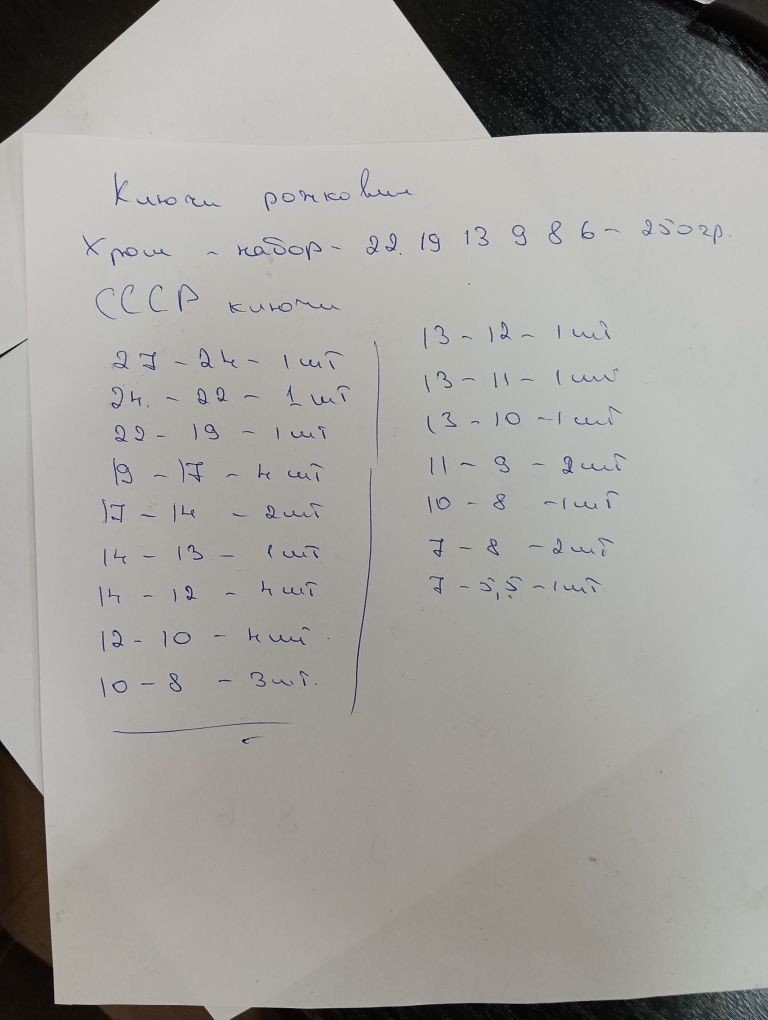 Ключи рожковые
Хром - набор - 22. 19 13 9 8 6 - 250 гр.
СССР ключи
27 - 24 - 1 шт
24. - 22 - 1 шт
22 - 19 - 1 шт
19 - 17 - 4 шт
17 - 14 - 2 шт
14 - 13 - 1 шт
14 - 12 - 4 шт
12 - 10 - 4 шт.
10 - 8 - 3 шт.
13 - 12 - 1 шт
13 - 11 - 1 шт
13 - 10 - 1 шт
11 - 9 - 2 шт
10 - 8 - 1 шт
7 - 8 - 2 шт
7 - 5,5 - 1 шт